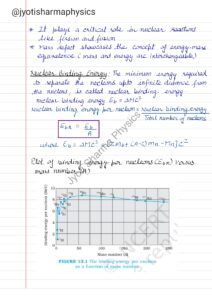 @jyotisharmaphysics
* It plays a critical role in nuclear reactions
like fission and fusion
* Mass defect showcases the concept of energy-mass
equivalence (mass and energy are interchangeable)
Nuclear binding Energy: The minimum energy required
to separate the nucleons upto infinite distance from
the nucleus, is called nuclear binding energy.
nuclear binding energy Eb = ΔMC²
nuclear binding energy per nucleon = nuclear binding energy
Total number of nucleons
Ebn = Eb
A
where Eb = ΔMC² = [Zmp + (A-Z)mn - Mn]C²
Plot of binding energy per nucleons (Ebn) versus
mass number (A)
Binding energy per nucleon (MeV)
10
8
6
4
2
0
0 50 100 150 200 250
Mass number (A)
FIGURE 13.1 The binding energy per nucleon
as a function of mass number.
Jyoti Sharma Physics